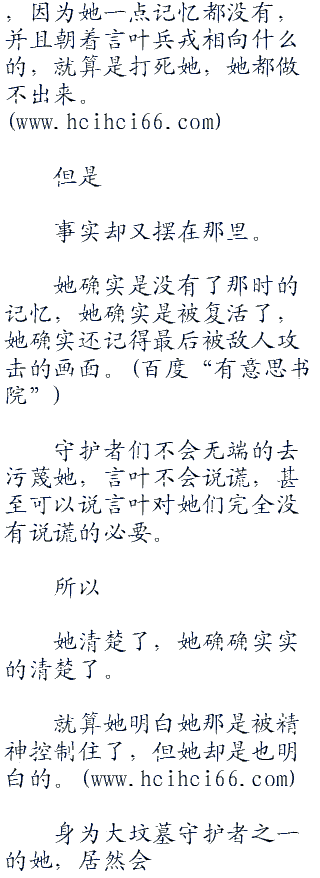 ，因为她一点记忆都没有，
并且朝着言叶兵戎相向什么
的，就算是打死她，她都做
不出来。
(www.hcihci66.com)
但是
事实却又摆在那里。
她确实是没有了那时的
记忆，她确实是被复活了，
她确实还记得最后被敌人攻
击的画面。(百度“有意思书
院”)
守护者们不会无端的去
污蔑她，言叶不会说谎，甚
至可以说言叶对她们完全没
有说谎的必要。
所以
她清楚了，她确确实实
的清楚了。
就算她明白她那是被精
神控制住了，但她却是也明
白的。(www.hcihci66.com)
身为大坟墓守护者之一
的她，居然会